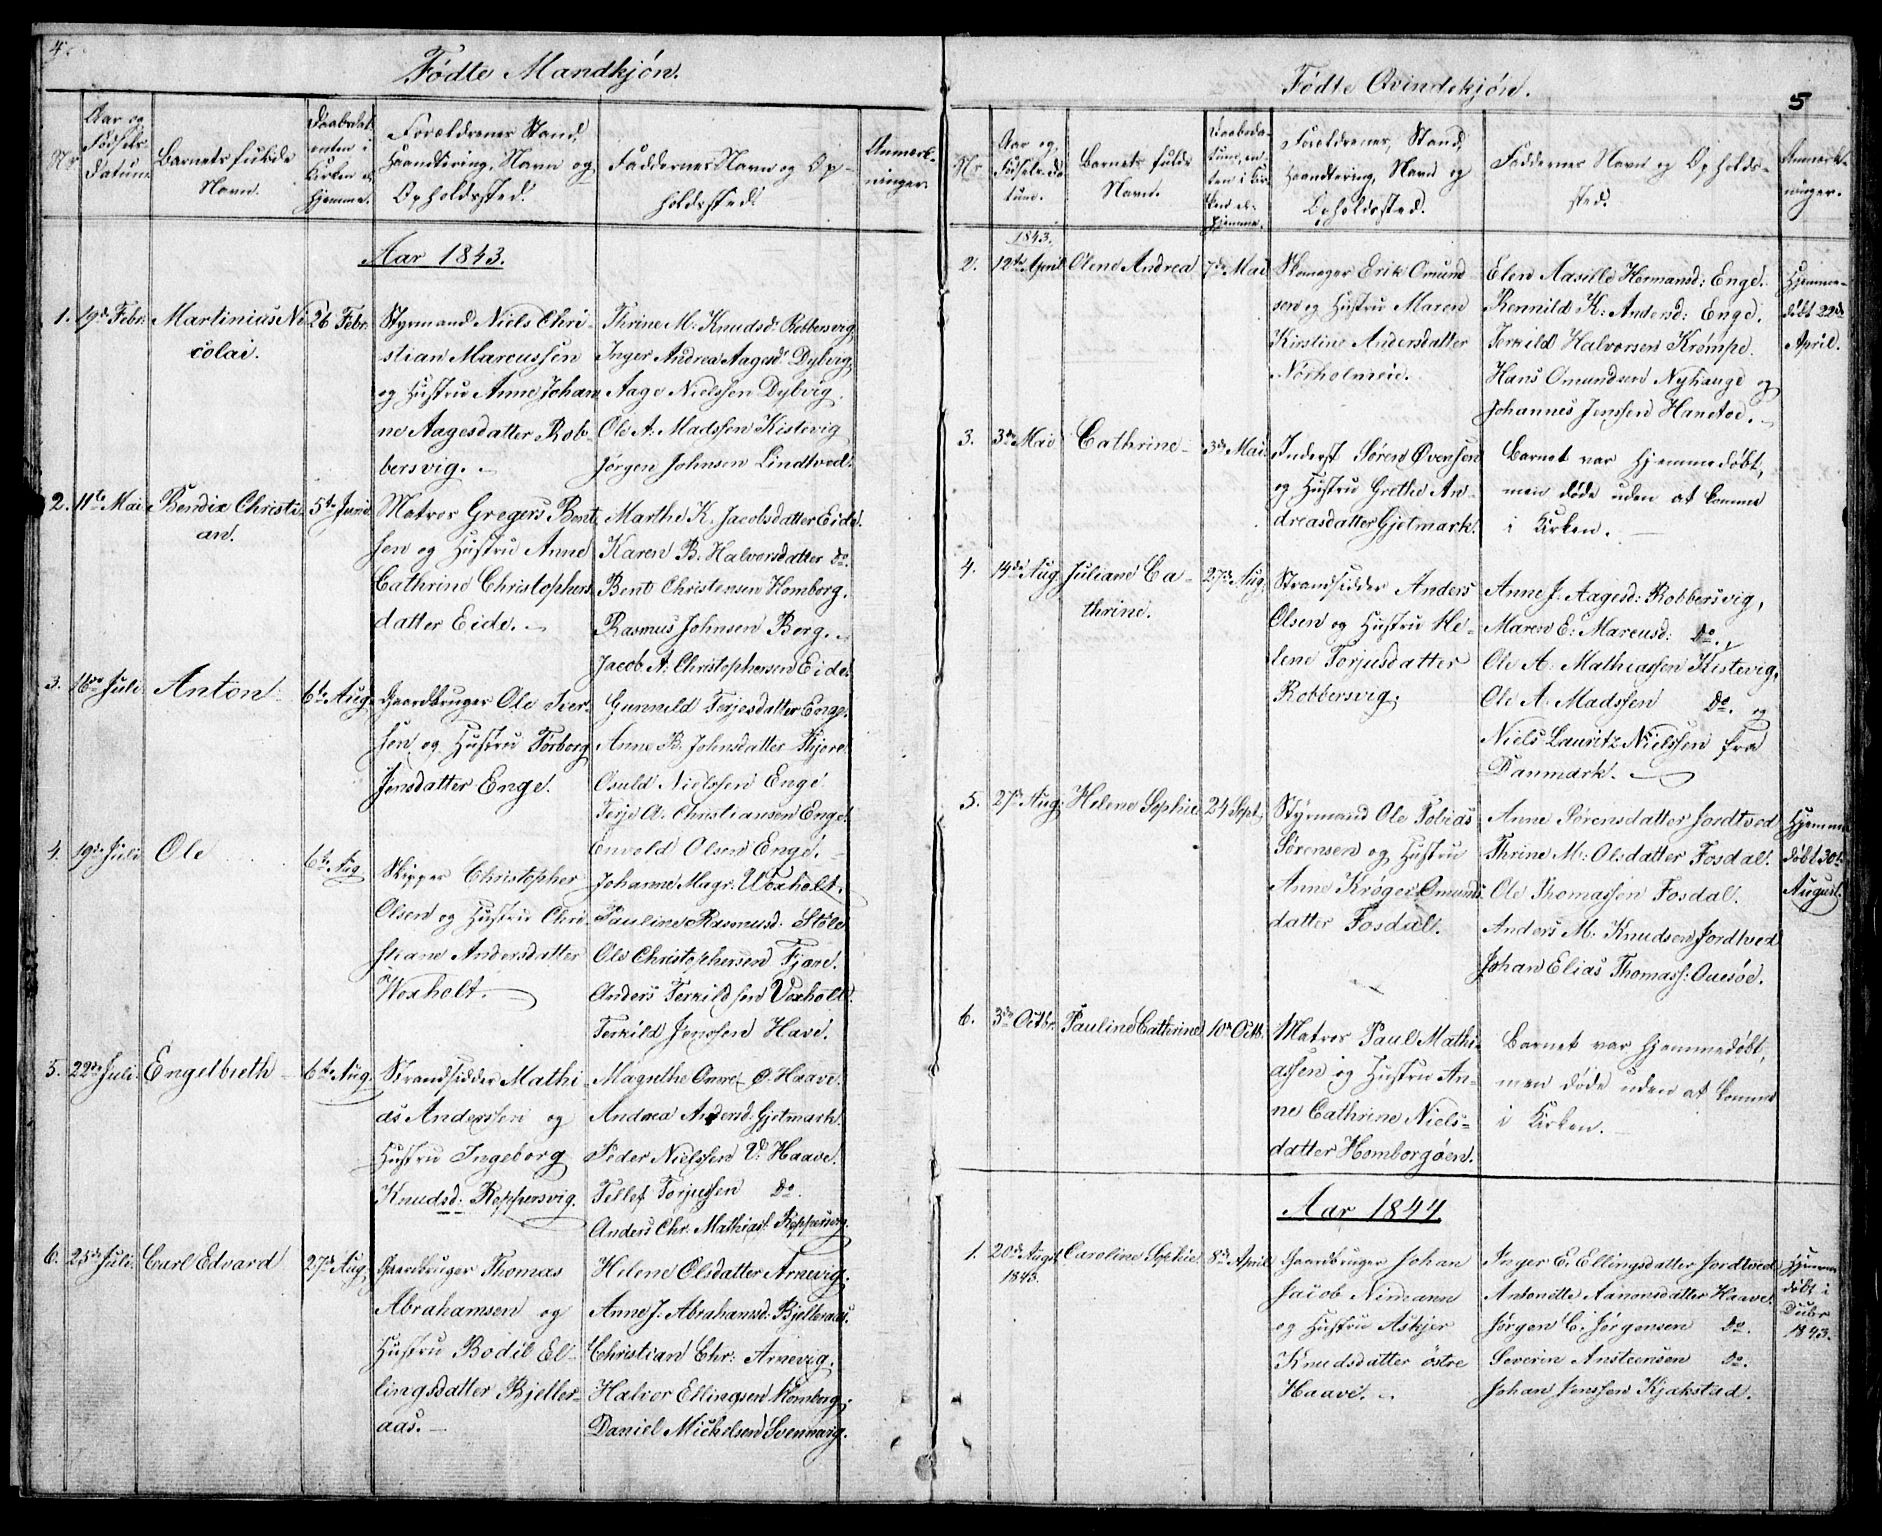 4.
Fødte Mandkjøn.
Nr
Aar og
Fødsels
Datum
Barnets fulde
Navn.
Daabsdat
enten i
Kirken el
Hjemme.
Forældrenes Stand,
Haandtering, Navn og
Opholdssted.
Faddernes Navn og Op-
holdssted.
Anmærk-
ninger.
Aar 1843.
1. 19de Febr. Martinius Ni
colai.
26 Febr.
Styrmand Niels Chri-
stian Marcussen
og Hustru Anne Johan
ne Aagesdatter Rob-
bersvig.
Thrine M. Knudsd: Robbersvig
Inger Andrea Aagesd Dybvig,
Aage Nielssen Dybvig.
Ole A: Madssen Kistevig
Jørgen Johnsen Lindtved.
2. 11te Mai Bendix Christi-
an.
5te Juni
Matros Gregers Bent
sen og Hustru Anne
Cathrine Christophers
datter Eide.
Marthe K. Jacobsdatter Eide.
Karen B. Halvorsdatter do.
Bent Christensen Homborg.
Rasmus Johnsen Berg.
Jacob A: Christophersen Eide.
3. 16de Juli Anton
6te Aug.
Gaardbruger Ole Iver-
sen og Hustru Torborg
Jensdatter Enge.
Gunnild Terjesdatter Enge.
Anne B. Johnsdatter
Osuld Nielssen Enge
Terje A. Christiansen Enge.
Envold Olsen Enge.
4. 19de Juli Ole
6te Aug
Skipper Christopher
Olsen og Hustru Chri-
stiane Andersdatter
Voxholt.
Johanne Magr. Voxholt.
Pauline Rasmusd. Støle
Ole Christophersen Fjære.
Anders Terkildsen Voxholt.
Terkild Jenssen Have.
5. 22de Juli Engelbreth
6te Aug.
Strandsidder Mathi-
as Anderssen og
Hustru Ingeborg
Knudsd: Roppersvig.
Magrethe Ø. Haave.
Andrea Andersd. Gjetmark.
Peder Nielssen V: Haave.
Tellef Torjussen Do.
Anders Chr. Mathiass. Roppersvig.
6. 25de Juli. Carl Edvard
27de Aug.
Gaardbruger Thomas
Abrahamsen og
Hustru Bodil El-
lingsdatter Bjeller-
aas.
Helene Olsdatter Arnevig.
Anne J. Abrahamsd: Bjelleraas.
Christian Chr: Arnevig.
Halvor Ellingsen Homborg,
Daniel Michelsen Svennevig.
Fødte Qvindekjøn.
5
Nr.
Aar og
Fødsels-da
tum.
Barnets fulde
Navn.
Daabsda-
tum, en-
ten i Kir-
ken el.
Hjemme.
Forældrenes, Stand,
Haandtering, Navn og
Opholdssted.
Faddernes Navn og Opholds-
sted.
Anmærk-
ninger.
1843.
2. 12te April Olene Andrea 7de Mai
Skomager Erik Omund
sen og Hustru Maren
Kirstine Andersdatter
Nørholmeie.
Elen Aasille Hermansd: Enge.
Rennild K: Andersd: Enge.
Terkild Halvorsen Krømpe.
Hans Omundsen Nyhauge og
Johannes Jenssen Hanetoe.
Hjemme-
døbt 22de
April.
3. 3de Mai Cathrine 3de Mai
Inderst Søren Øvensen
og Hustru Grethe An-
dreasdatter Gjetmark.
Barnet var hjemmedøbt,
men døde uden at komme
i Kirken.
4. 14de Aug. Juliane Ca-
thrine.
27de Aug.
Strandsidder Anders
Olsen og Hustru He-
lene Torjusdatter
Robbersvig.
Anne J. Aagesd: Robbersvig,
Maren E: Marcusd: Do.
Ole A. Mathiassen Kistevig,
Ole A. Madssen Do. og
Niels Lauritz Nielssen fra
Danmark.
5. 27de Aug. Helene Sophie 24 Sept.
Styrmand Ole Tobias
Sørensen og Hustru
Anne Krøger Omunds
datter Fosdal.
Anne Sørensdatter Jordtved
Thrine M: Olsdatter Fosdal.
Ole Thomassen Fosdal.
Anders M. Knudsen Jordtved
Johan Elias Thomass: Quesøe.
Hjemme
døbt 30te
August.
6. 3de Octbr. Pauline Cathrine 10de Octb.
Matros Paul Mathi-
assen og Hustru An-
ne Cathrine Niels-
datter Homborgøen.
Barnet var hjemmedøbt,
men døde uden at komme
i Kirken.
Aar 1844.
1. 20de August
1843.
Caroline Sophie 8de April
Gaardbruger Johan
Jacob Nimann
og Hustru Askjer
Knudsdatter østre
Haave.
Inger E. Ellingsdatter Jordtved
Antonette Aanonsdatter Haave.
Jørgen C. Jørgensen Do.
Severin Anstensen do.
Johan Jenssen Kjakstad.
Hjemme
døbt i
Decbr
1843.